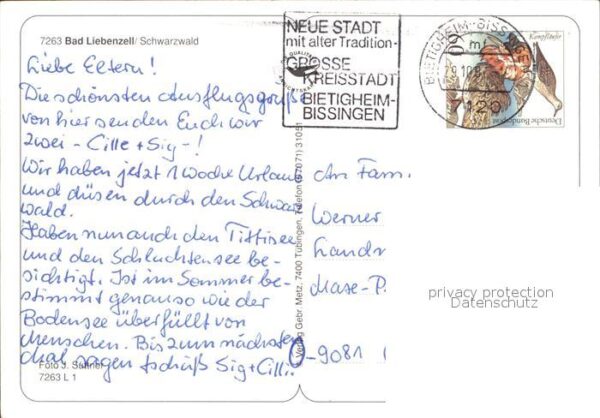 7263 Bad Liebenzell/ Schwarzwald
NEUE STADT
mit alter Tradition-
GROSSE
KREISSTADT
BIETIGHEIM-
BISSINGEN
BIETIGHEIM-BISSINGEN
7120
60
Kampfläufer
Deutsche Bundespost
QUALITÄT
Liebe Eltern!
Die schönsten Ausflugsgrüße
von hier senden Euch wir
zwei - Cille + Sig - !
Wir haben jetzt 1 Woche Urlaub
und düsen durch den Schwarz
wald.
Haben nun auch den Titisee
und den Schluchtensee be-
sichtigt. Ist im Sommer be-
stimmt genauso wie der
Bodensee überfüllt von
Menschen. Bis zum nächsten
Mal sagen tschüß Sig + Cilli.
Verlag Gebr. Metz, 7400 Tübingen, Telefon (07071) 31051
An Fam.
Werner
Landr
Mase-P
O-9081
privacy protection
Datenschutz
Foto J. Stüfner
7263 L 1